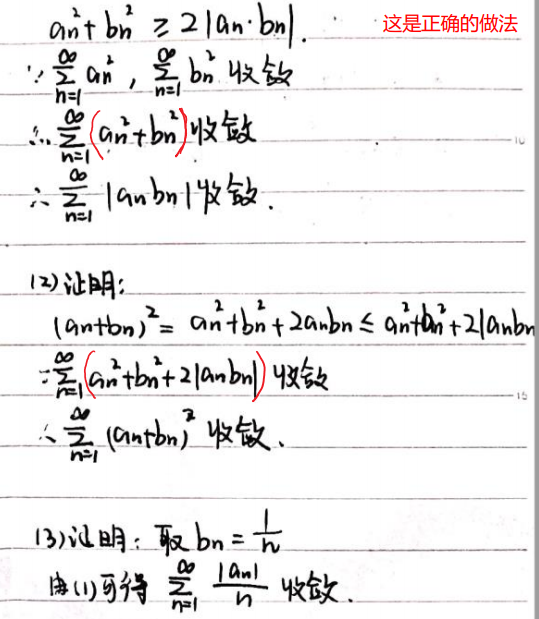 这是正确的做法
an²+bn² ≥ 2|an·bn|.
∵ ∞∑n=1 an², ∞∑n=1 bn² 收敛
∴ ∞∑n=1 (an²+bn²) 收敛
∴ ∞∑n=1 |anbn| 收敛.
(2)证明:
(an+bn)² = an²+bn²+2anbn ≤ an²+bn²+2|anbn
∵ ∞∑n=1 (an²+bn²+2|anbn|) 收敛
∴ ∞∑n=1 (an+bn)² 收敛.
(3)证明: 取 bn = 1/n
由(1)可得 ∞∑n=1 |an|/n 收敛.